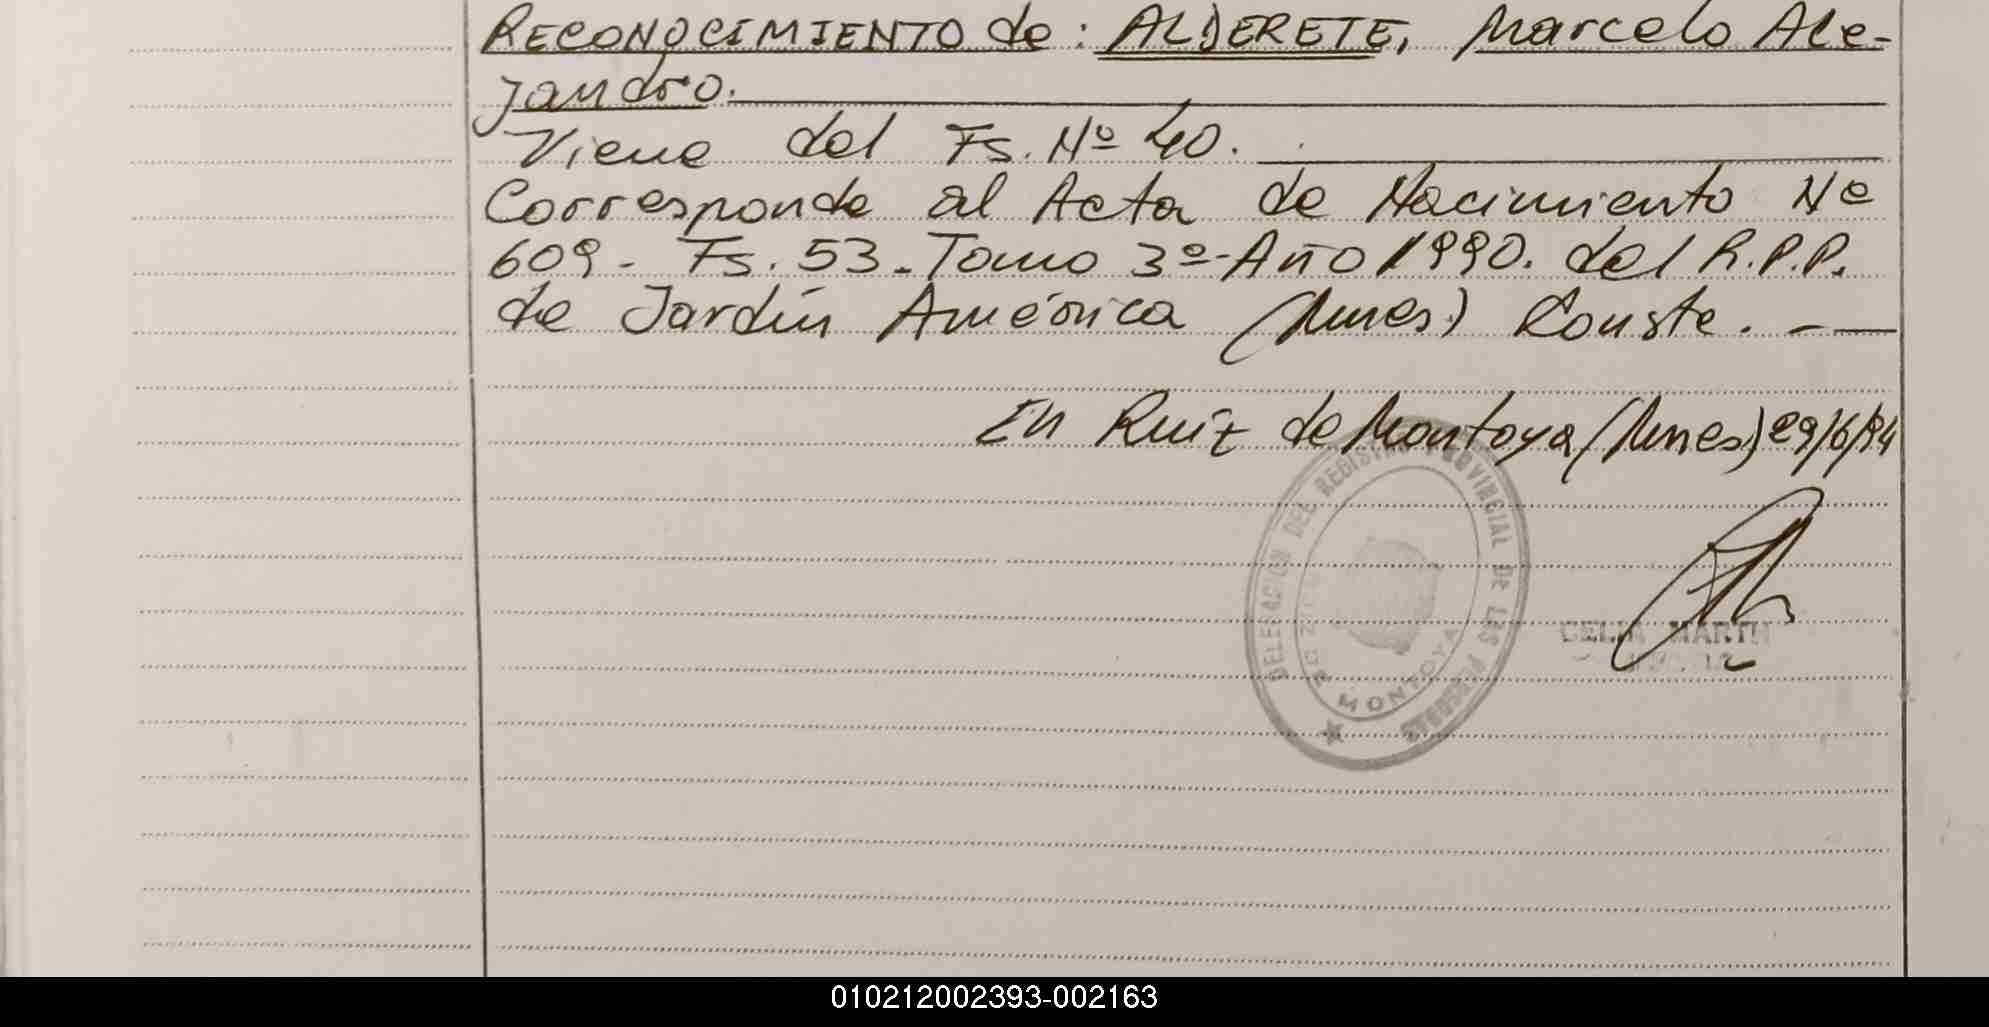 RECONOCIMIENTO de: ALDERETE, Marcelo Ale-
jandro.
Viene del Fs. Nº 40.
Corresponde al Acta de Nacimiento Nº
609- Fs. 53-Tomo 3º-Año 1990. del R.P.P.
de Jardín América (Mnes) Conste. -
En Ruiz de Montoya (Mnes) 29/6/94
DELEGACION DEL REGISTRO PROVINCIAL DE LAS PERSONAS
MONTOYA
CELIA MARTH
010212002393-002163